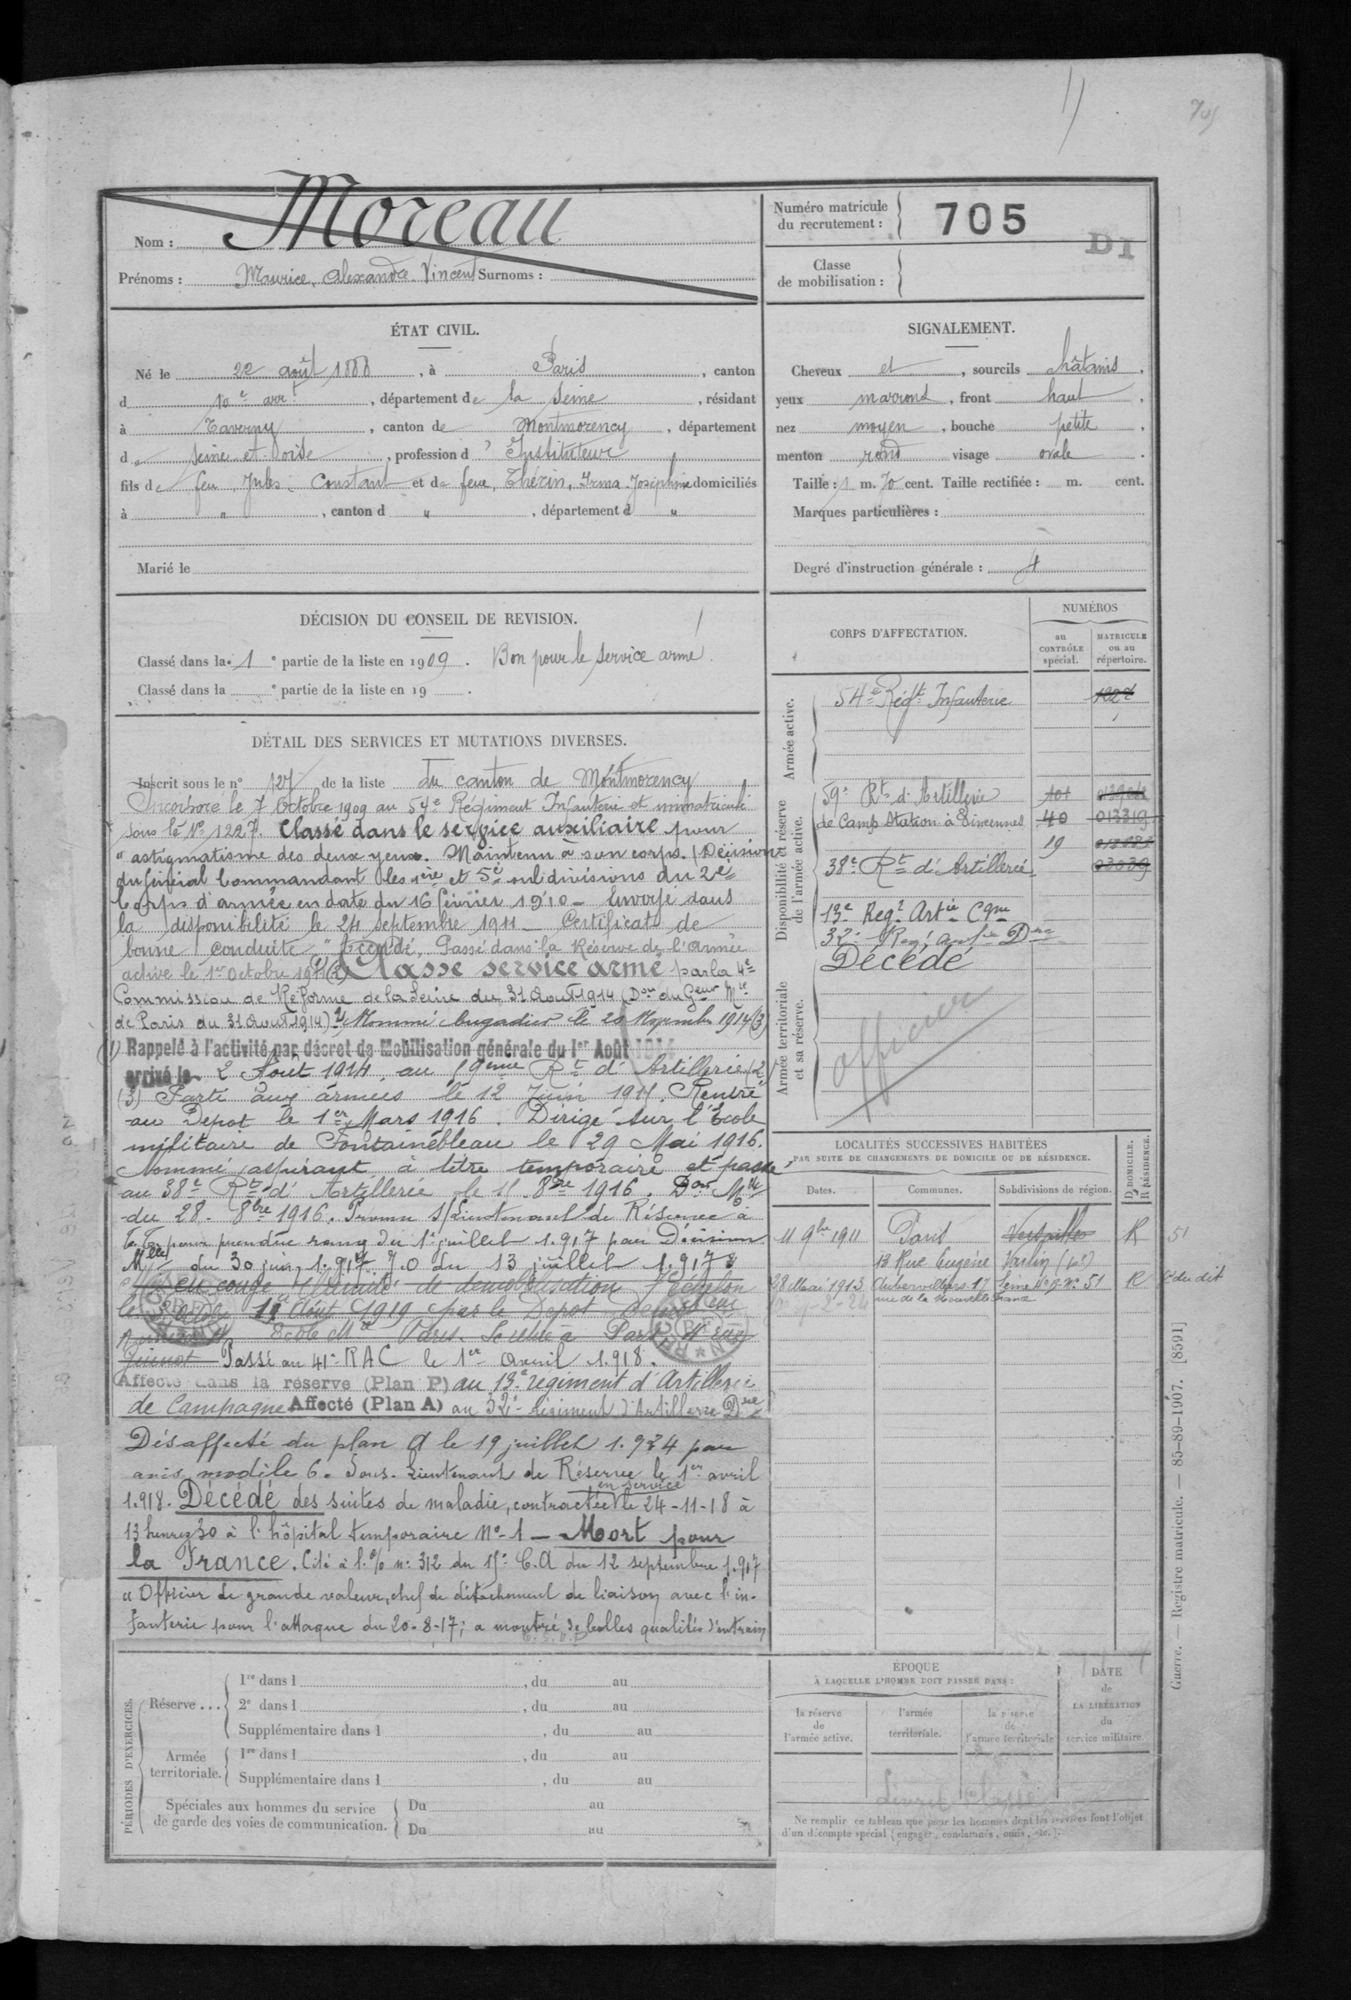 705
Nom : Moreau
Prénoms : Maurice, Alexandre, Vincent Surnoms :
Numéro matricule
du recrutement : 705
D1
Classe
de mobilisation :
ÉTAT CIVIL.
Né le 22 août 1888, à Paris, canton
d 10e arrt, département de la Seine, résidant
à Taverny, canton de Montmorency, département
de Seine-et-Oise, profession d'Instituteur
fils de feu Jules Constant et de feue Thérin, Irma Joséphine domiciliés
à " , canton d " , département d "
Marié le
SIGNALEMENT.
Cheveux et , sourcils châtains,
yeux marrons, front haut,
nez moyen, bouche petite,
menton rond visage ovale.
Taille : 1 m. 70 cent. Taille rectifiée : m. cent.
Marques particulières :
Degré d'instruction générale : 4
DÉCISION DU CONSEIL DE REVISION.
Classé dans la 1e partie de la liste en 1909. Bon pour le service armé.
Classé dans la e partie de la liste en 19 .
DÉTAIL DES SERVICES ET MUTATIONS DIVERSES.
Inscrit sous le n° 127 de la liste du canton de Montmorency
Incorporé le 7 Octobre 1909 au 54e Régiment Infanterie et immatriculé
sous le N° 1227. Classé dans le service auxiliaire pour
"astigmatisme des deux yeux. Maintenu à son corps. (Décision
du Général Commandant les 1ère et 5e subdivisions du 2e
Corps d'armée en date du 16 février 1910 – Envoyé dans
la disponibilité le 24 septembre 1911 – Certificat de
bonne conduite "Accordé". Passé dans la Réserve de l'armée
active le 1er Octobre 1911 (1) (2) Classé service armé par la 4e
Commission de Réforme de la Seine du 31 Août 1914 (Don du Geur Mre
de Paris du 31 Août 1914) Nommé brigadier le 20 Novembre 1914 (3)
(1) Rappelé à l'activité par décret de Mobilisation générale du 1er Août 1914
arrivé le 2 Août 1914 au 59eme Rt d'Artillerie (2)
(3) Parti aux armées le 12 Juin 1915. Rentré
au Dépot le 1er Mars 1916. Dirigé sur l'Ecole
militaire de Fontainebleau le 29 Mai 1916.
Nommé aspirant à titre temporaire et passé
au 38e Rt d'Artillerie le 15 8bre 1916. Don Mlle
du 28. 8bre 1916. Promu s/Lieutenant de Réserve à
T.T. pour prendre rang du 1er juillet 1.917 par Décision
Mlle du 30 juin 1.917 J.O du 13 juillet 1.917
de démobilisation
Août 1919 par le Dépot
Paris. Se retire à Paris
Passé au 41e RAC le 1er avril 1.918.
Affecté dans la réserve (Plan P) au 13e régiment d'Artillerie
de Campagne Affecté (Plan A) au 32e Régiment d'Artillerie Dre
Désaffecté du plan A le 19 juillet 1.924 par
avis modèle 6. Sous-Lieutenant de Réserve le 1er avril
1.918. Décédé des suites de maladie, contractée en service le 24-11-18 à
13 heures 30 à l'hôpital temporaire N°-1 – Mort pour
la France. Cité à l'o/o n° 312 du 15e C.A du 12 septembre 1.917
"Officier de grande valeur, chef de détachement de liaison avec l'in-
fanterie pour l'attaque du 20-8-17; a montré de belles qualités d'entrain
CORPS D'AFFECTATION.
NUMÉROS
au
CONTRÔLE
spécial.
MATRICULE
ou au
répertoire.
Armée active.
54e Régt Infanterie 1227
Disponibilité et réserve
de l'armée active.
59e Rt d'Artillerie 101
de Camp. Station à Vincennes 40 013319
19
38e Rt d'Artillerie 03039
13e Regt Artie Cgne
32e Reg. artie Dre
Décédé
Armée territoriale
et sa réserve.
officier
LOCALITÉS SUCCESSIVES HABITÉES
PAR SUITE DE CHANGEMENTS DE DOMICILE OU DE RÉSIDENCE.
Dates. Communes. Subdivisions de région. D DOMICILE. R RÉSIDENCE.
11 9bre 1911 Paris Versailles R 51
13 Rue Eugène Varlin (10e)
28 Mai 1913 Aubervilliers 17 Seine R
rue de la Nouvelle France
PÉRIODES D'EXERCICES.
Réserve ... 1re dans l , du au
2e dans l , du au
Supplémentaire dans l , du au
Armée
territoriale. 1re dans l , du au
Supplémentaire dans l , du au
Spéciales aux hommes du service
de garde des voies de communication. Du au
Du au
ÉPOQUE
À LAQUELLE L'HOMME DOIT PASSER DANS :
la réserve
de
l'armée active.
l'armée
territoriale.
la réserve
de
l'armée territoriale
DATE
de
LA LIBÉRATION
du
service militaire.
Livret classé
Ne remplir ce tableau que pour les hommes dont les services font l'objet
d'un décompte spécial (engagés, condamnés, omis, etc.).
Guerre. — Registre matricule. — 85-89-1907. [8591]